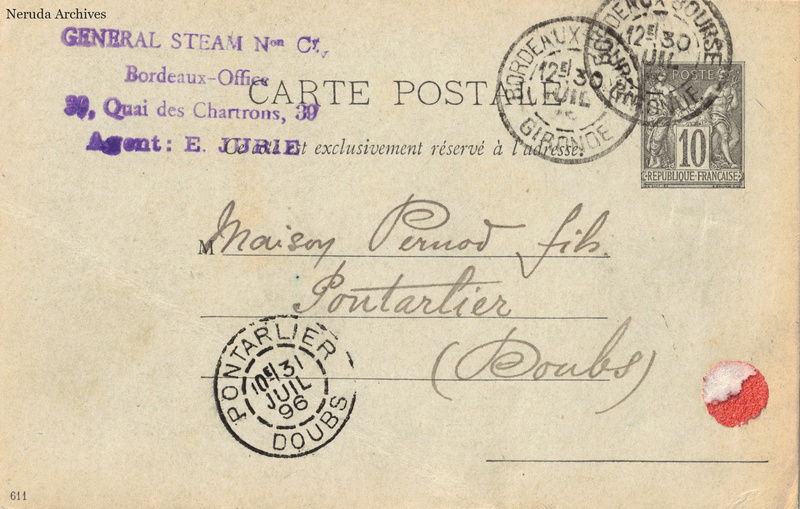 Neruda Archives
GENERAL STEAM Nᵒⁿ Cʸ,
Bordeaux-Office
39, Quai des Chartrons, 39
Agent: E. JURIE
CARTE POSTALE
Ce côté est exclusivement réservé à l'adresse.
BORDEAUX-BOURSE
12ᴱ/30
JUIL
GIRONDE
BORDEAUX-BOURSE
12ᴱ/30
JUIL
96
GIRONDE
POSTE
10
REPUBLIQUE·FRANÇAISE
M Maison Pernod fils.
Pontarlier
(Doubs)
PONTARLIER
10ᴱ/31
JUIL
96
DOUBS
611